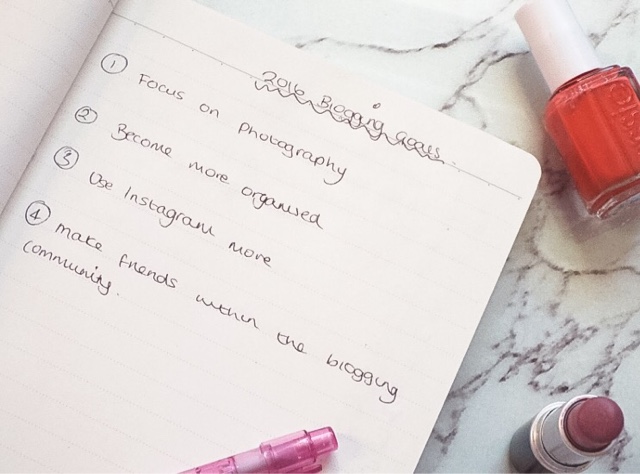 2016 Blogging goals.
① Focus on Photography
② Become more organised
③ Use Instagram more
④ make friends within the blogging
community.
essie